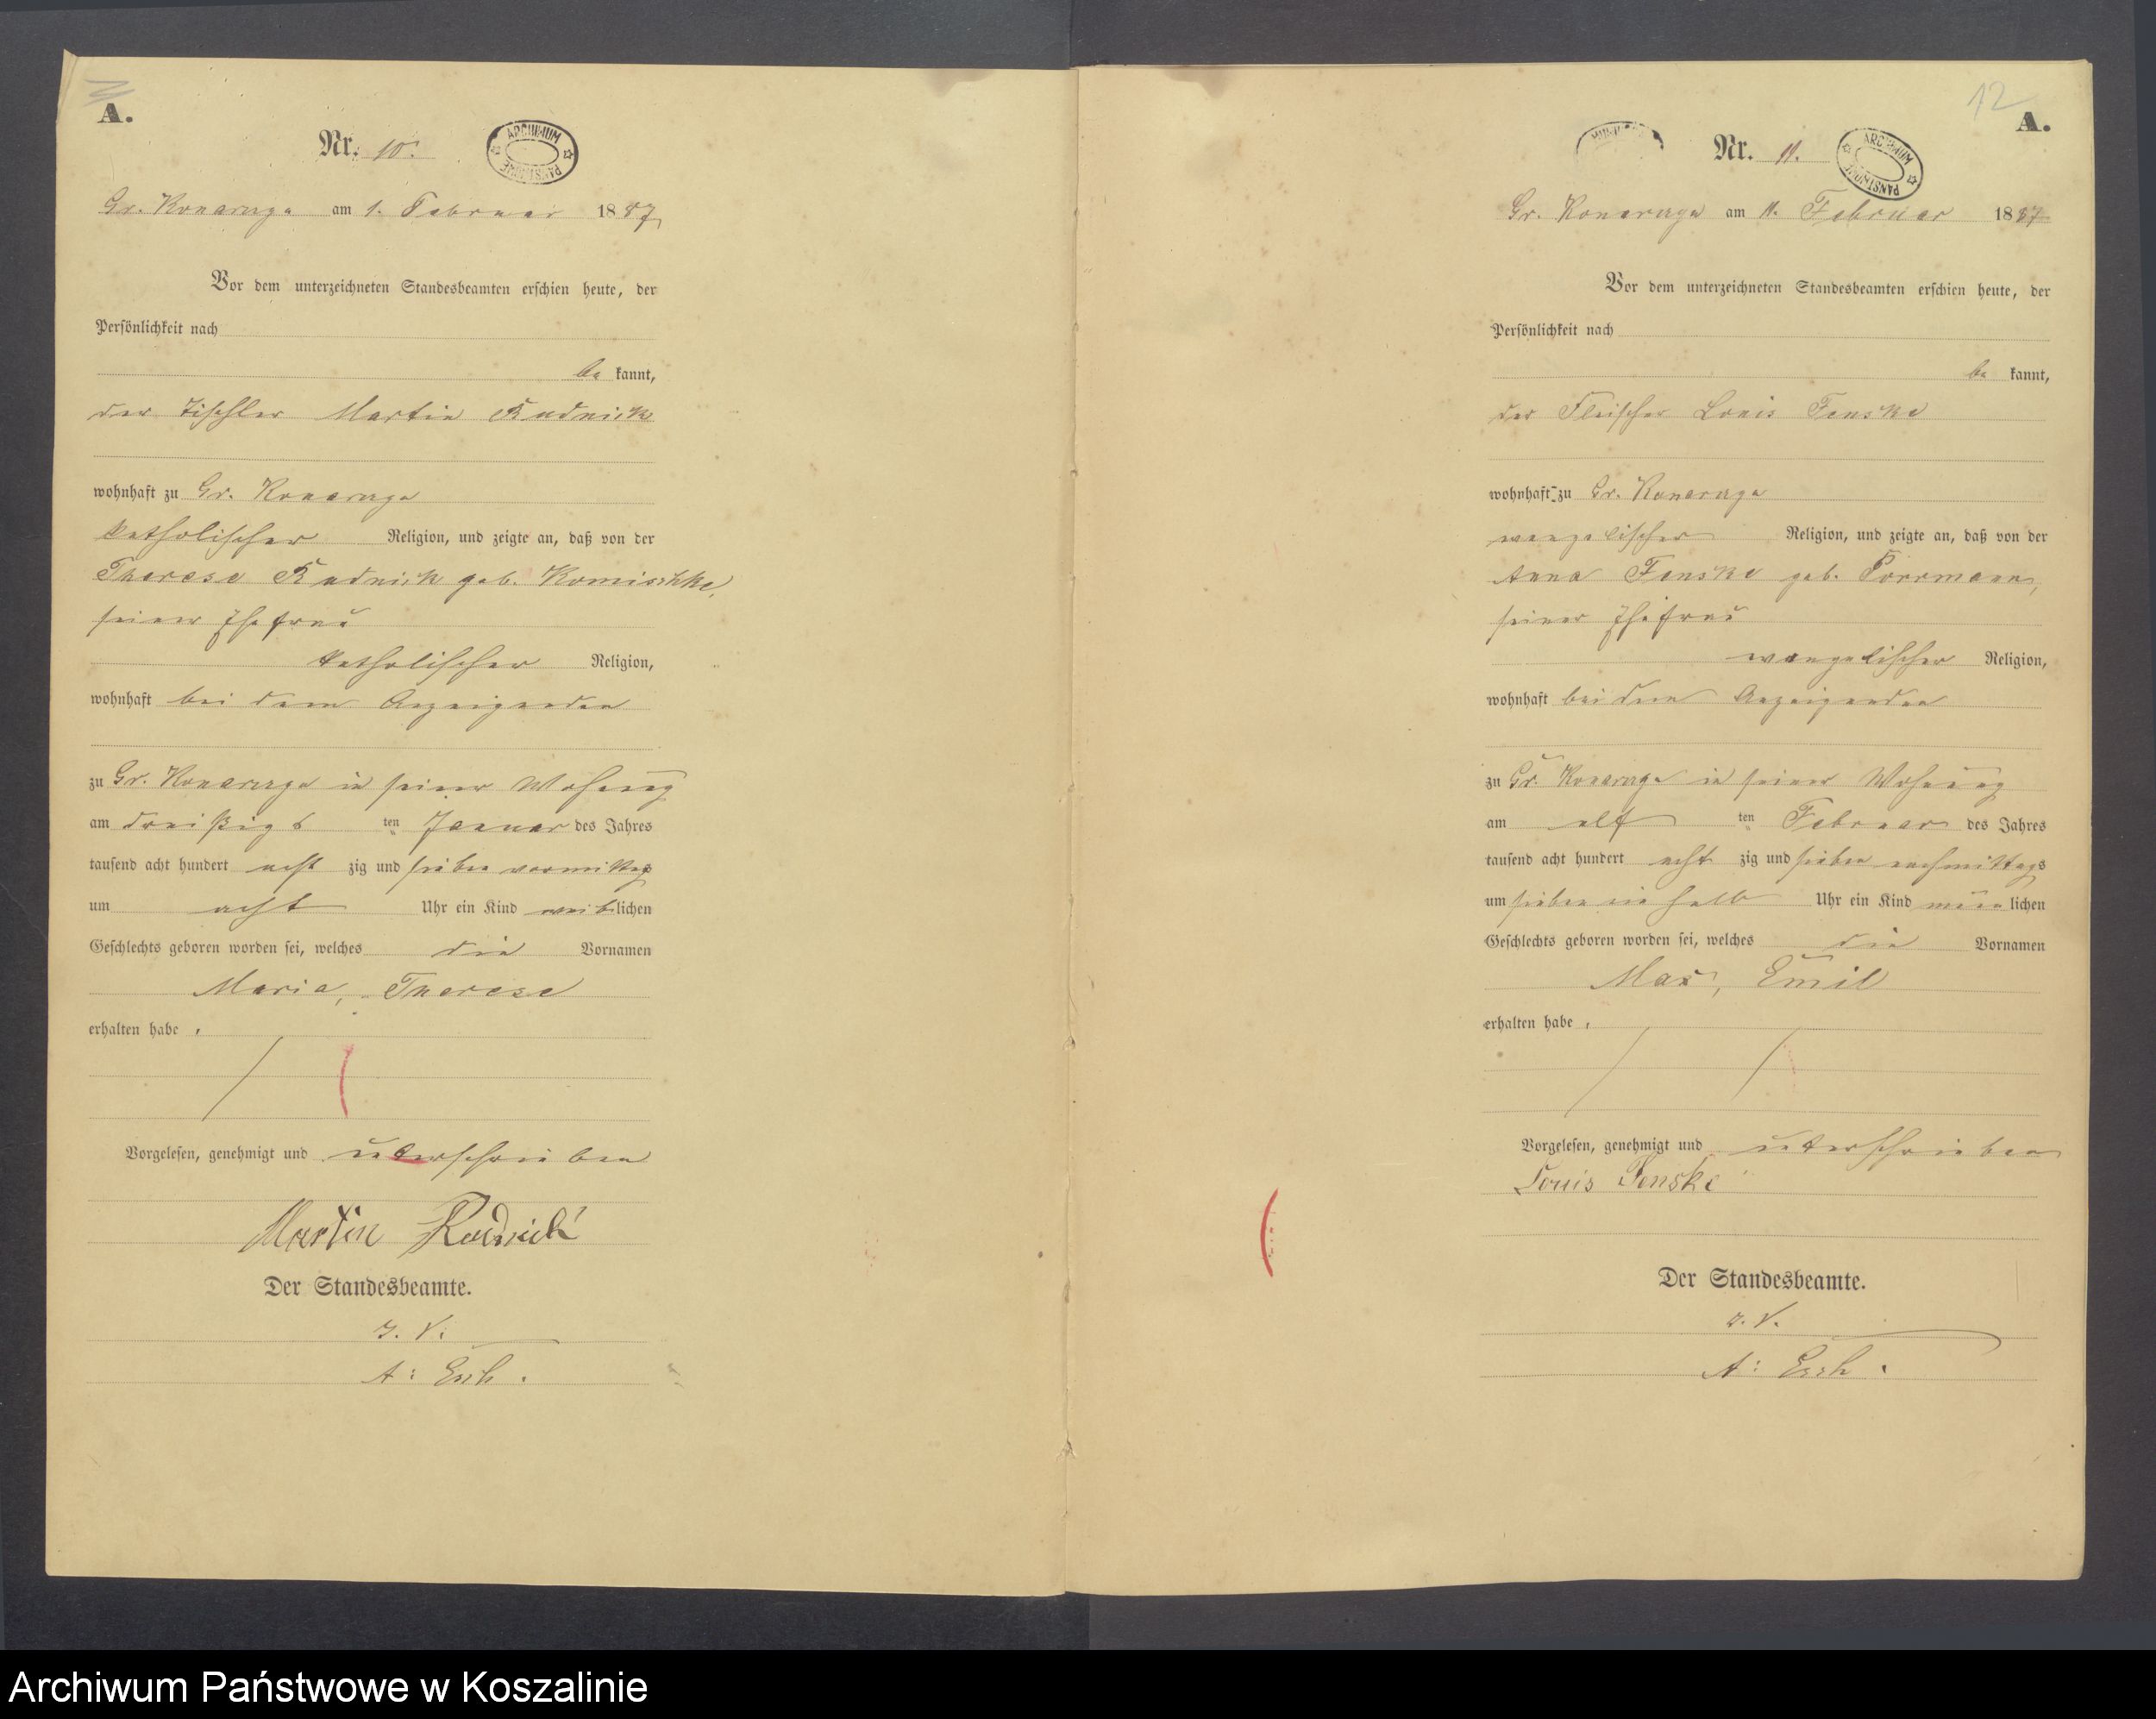 A.
Nr. 10.
ARCHIWUM PAŃSTWOWE
Gr. Konarzyn am 1. Februar 1887
Vor dem unterzeichneten Standesbeamten erschien heute, der
Persönlichkeit nach
be kannt,
der Tischler Martin Rudnick
wohnhaft zu Gr. Konarzyn
katholischer Religion, und zeigte an, daß von der
Therese Rudnick geb. Komischke,
seiner Ehefrau
katholischer Religion,
wohnhaft bei dem Anzeigenden
zu Gr. Konarzyn in seiner Wohnung
am dreißigs ten Januar des Jahres
tausend acht hundert acht zig und sieben vormittags
um acht Uhr ein Kind weiblichen
Geschlechts geboren worden sei, welches die Vornamen
Maria, Therese
erhalten habe.
Vorgelesen, genehmigt und unterschrieben
Martin Rudnick
Der Standesbeamte.
J. V.
A: Esch.
12
A.
Nr. 11.
ARCHIWUM PAŃSTWOWE
Gr. Konarzyn am 11. Februar 1887
Vor dem unterzeichneten Standesbeamten erschien heute, der
Persönlichkeit nach
be kannt,
der Fleischer Louis Fenske
wohnhaft zu Gr. Konarzyn
evangelischer Religion, und zeigte an, daß von der
Anna Fenske geb. Porrmann,
seiner Ehefrau
evangelischer Religion,
wohnhaft bei dem Anzeigenden
zu Gr. Konarzyn in seiner Wohnung
am elf ten Februar des Jahres
tausend acht hundert acht zig und sieben nachmittags
um sieben ein halb Uhr ein Kind männlichen
Geschlechts geboren worden sei, welches die Vornamen
Max, Emil
erhalten habe.
Vorgelesen, genehmigt und unterschrieben
Louis Fenske
Der Standesbeamte.
J. V.
A: Esch.
Archiwum Państwowe w Koszalinie